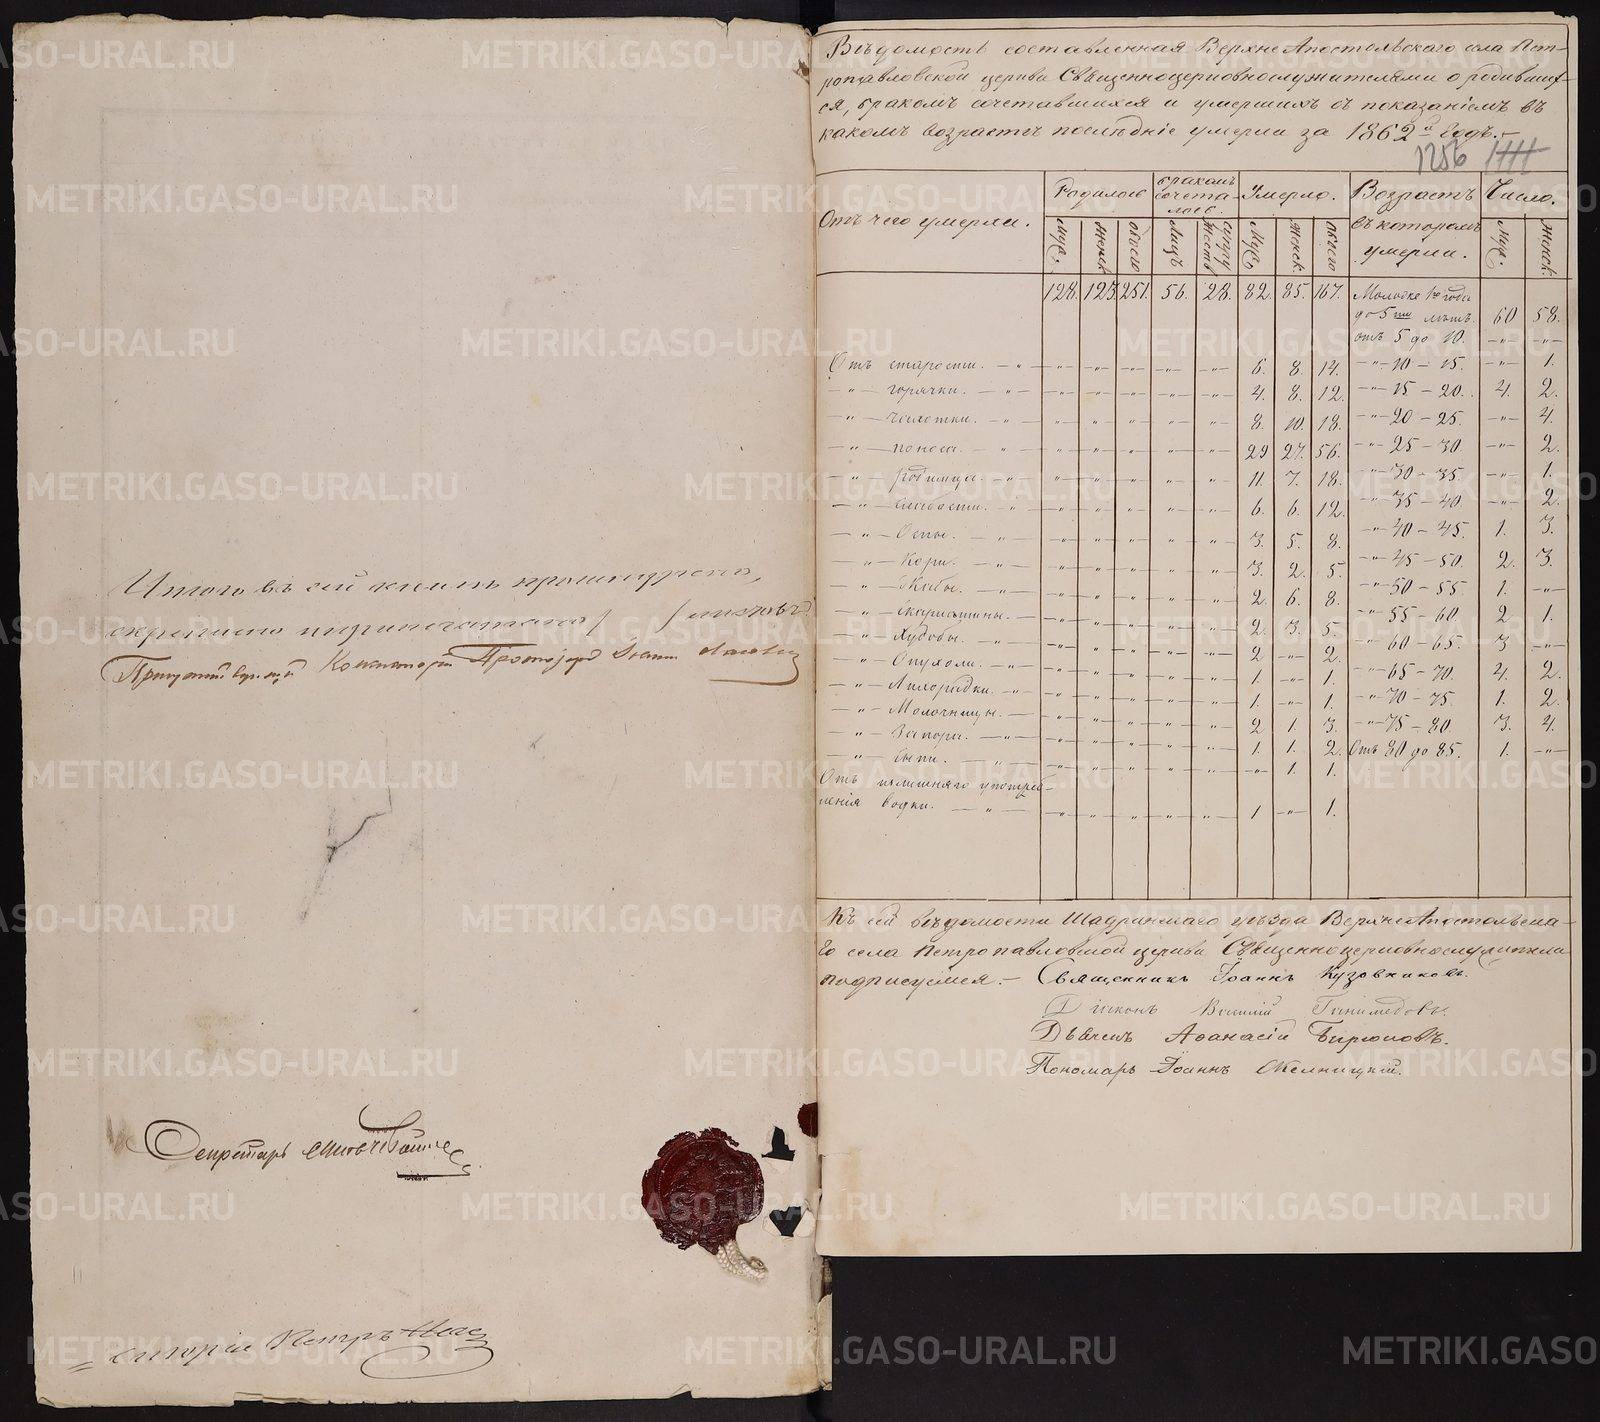 Итого въ сей книгѣ прошнуровано,
скрѣплено и припечатано листовъ
Присутствующій Консисторіи Протоіерей Іоаннъ
Секретарь
Петръ
Вѣдомость составленная Верхне Апостольскаго села Пет-
ропавловской церкви Священноцерковнослужителями о родивших-
ся, бракомъ сочетавшихся и умершихъ съ показаніемъ въ
какомъ возрастѣ послѣдніе умерли за 1862й годъ.
1256
Отъ чего умерли. Родилось бракомъ сочета-лось. Умерло. Возрастъ въ которомъ умерли. Число.
Муж. Женск. Обоего Лицъ Супружествъ Муж. Женск. Обоего Муж. Женск.
128. 123. 251. 56. 28. 82. 85. 167. Моложе 1го года
до 5ти лѣтъ. 60 58.
отъ 5 до 10. -"- -"-
Отъ старости. 6. 8. 14. -"- 10 - 15. -"- 1.
-"- горячки. 4. 8. 12. -"- 15 - 20. 4. 2.
-"- чахотки. 8. 10. 18. -"- 20 - 25. -"- 4.
-"- поноса. 29 27. 56. -"- 25 - 30 -"- 2.
-"- родимца. 11. 7. 18. -"- 30 - 35. -"- 1.
-"- слабости. 6. 6. 12. -"- 35 - 40 -"- 2.
-"- Оспы. 3. 5. 8. -"- 40 - 45. 1. 3.
-"- Кори. 3. 2. 5. -"- 45 - 50. 2. 3.
-"- Жабы. 2. 6. 8. -"- 50 - 55. 1. -"-
-"- Скарлатины. 2. 3. 5. -"- 55 - 60. 2. 1.
-"- Худобы. 2 -"- 2. -"- 60 - 65. 3 -"-
-"- Опухоли. 1. -"- 1. -"- 65 - 70. 4. 2.
-"- Лихорадки. 1. -"- 1. -"- 70 - 75. 1. 2.
-"- Молочницы. 2 1. 3. -"- 75 - 80 3. 4.
-"- Запора. 1. 1. 2. Отъ 80 до 85. 1. -"-
-"- Сыпи. -"- 1. 1.
Отъ излишняго употреб-
ленія водки. 1 -"- 1.
Къ сей вѣдомости Шадринскаго уѣзда Верхне Апостольска-
го села Петропавловской церкви Священноцерковнослужители
подписуемся. Священникъ Іоаннъ Кузовниковъ.
Діаконъ Василій Ганимедовъ.
Дьячекъ Аѳанасій Бирюковъ.
Пономарь Іоаннъ
METRIKI.GASO-URAL.RU